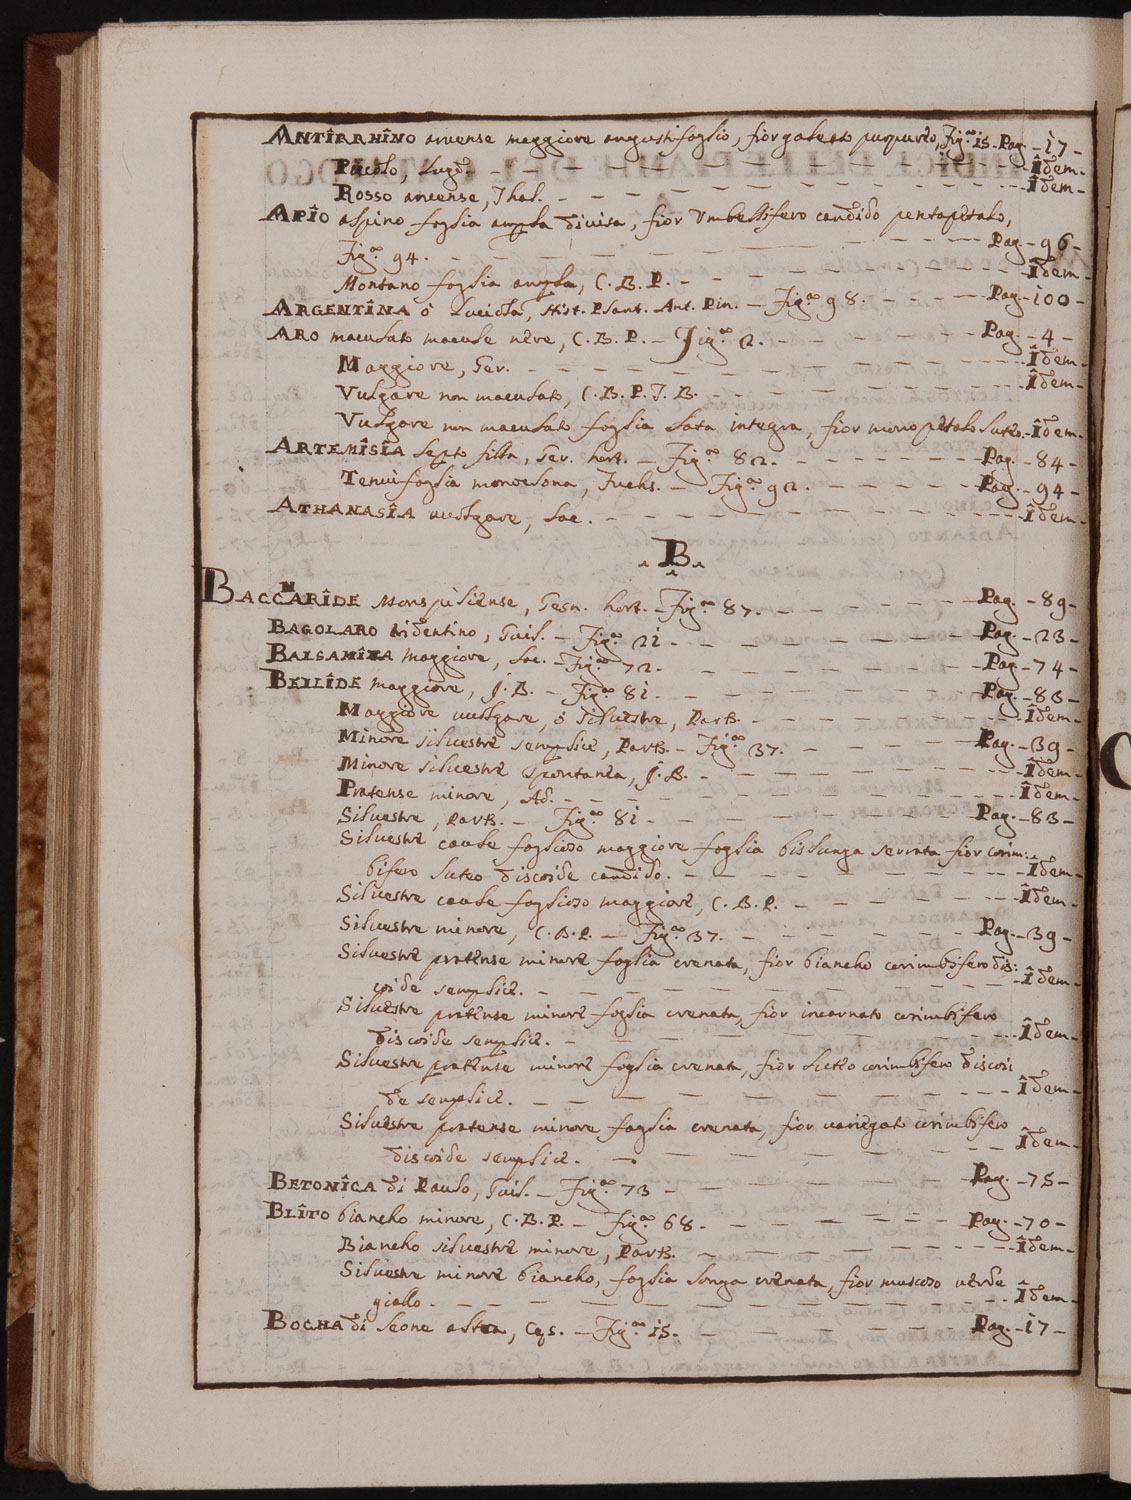 ANTÎRRHÎNO arvense maggiore angustifoglio, fior galeato purpureo, Fig.ª 15. Pag. - 17 -
Piccolo, Lugd. - Îdem -
Rosso arvense, Thal. - Îdem -
APÎO alpino foglia ampla divisa, fior Umbellifero candido pentapetalo,
Fig.ª 94. - Pag. - 96 -
Montano foglia ampla, C. B. P. - Îdem -
ARGENTÎNA ò Lucida, Hist. Plant. Ant. Pin. - Fig.ª 98. - Pag. - 100 -
ARO maculato macule nere, C. B. P. - Fig.ª 2. - Pag. - 4 -
Maggiore, Ger. - Îdem -
Vulgare non maculato, C. B. P. J. B. - Îdem -
Vulgare non maculato foglia lata integra, fior monopetalo luteo - Îdem -
ARTEMÎSÎA lepto filla, Ger. hort. - Fig.ª 82. - Pag. - 84 -
Tenuifoglia monoclona, Fuchs. - Fig.ª 92. - Pag. - 94 -
ATHANASÎA vulgare, Loe. - Îdem -
B
BACCHARÎDE Monspeliense, Gesn. hort. - Fig.ª 87. - Pag. - 89 -
BAGOLARO tridentino, Guil. - Fig.ª 21 - Pag. - 23 -
BALSAMÎTA maggiore, Loe. - Fig.ª 72. - Pag. - 74 -
BELLÎDE maggiore, J. B. - Fig.ª 81. - Pag. - 83 -
Maggiore vulgare, ò silvestre, Park. - Îdem -
Minore silvestre semplice, Park. - Fig.ª 37. - Pag. - 39 -
Minore silvestre spontanea, J. B. - Îdem -
Pratense minore, Ad. - Îdem -
Silvestre, Park. - Fig.ª 81 - Pag. - 83 -
Silvestre caule foglioso maggiore foglia bislunga serrata fior corim:
bifero luteo discoide candido. - Îdem -
Silvestre caule foglioso maggiore, C. B. P. - Îdem -
Silvestre minore, C. B. P. - Fig.ª 37. - Pag. - 39 -
Silvestre pratense minore foglia crenata, fior biancho corimbifero dis:
coide semplice. - Îdem -
Silvestre pratense minore foglia crenata, fior incarnato corimbifero
discoide semplice. - Îdem -
Silvestre pratense minore foglia crenata, fior luteo corimbifero discoi
de semplice. - Îdem -
Silvestre pratense minore foglia crenata, fior variegato corimbifero
discoide semplice. - Îdem -
BETONÎCA di Paulo, Guil. - Fig.ª 73 - Pag. - 75 -
BLÎTO biancho minore, C. B. P. - Fig.ª 68 - Pag. - 70 -
Biancho silvestre minore, Park. - Îdem -
Silvestre minore biancho, foglia longa crenata, fior muscoso verde
giallo. - Îdem -
BOCHA di leone altra, Cęs. - Fig.ª 15. - Pag. - 17 -